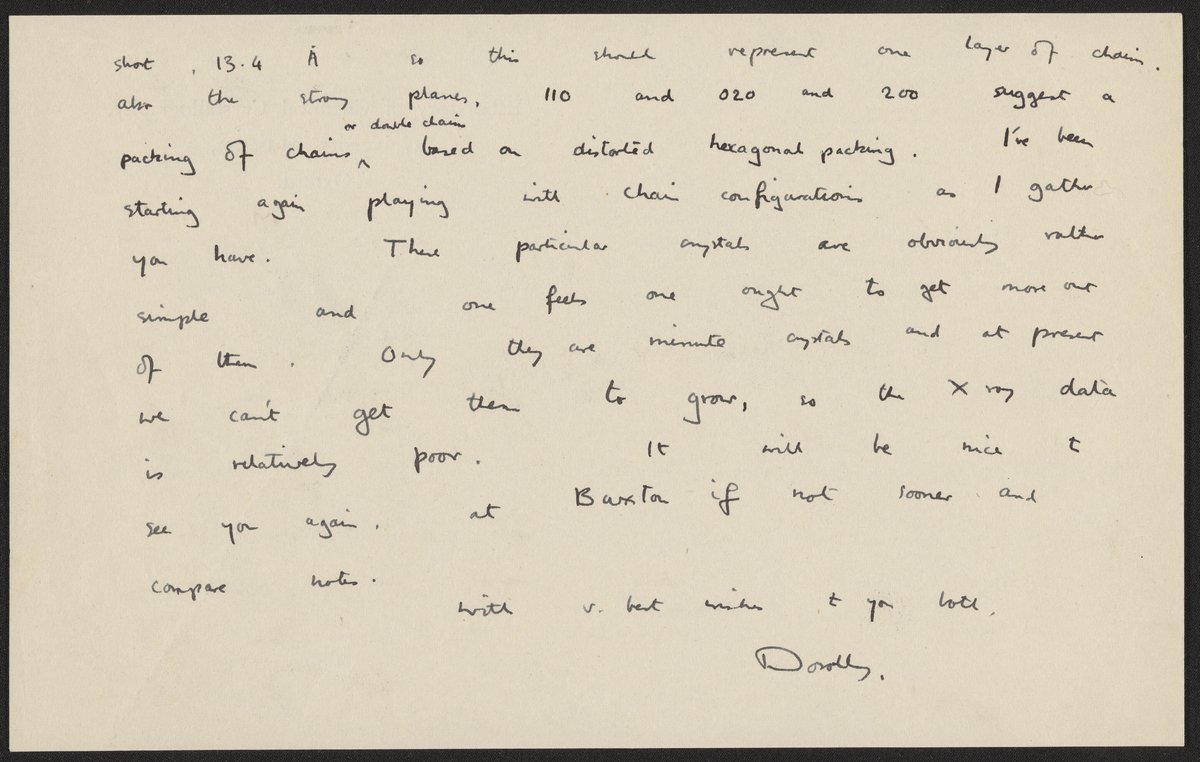 short, 13.4 Å so this should represent one layer of chains.
also the strong planes, 110 and 020 and 200 suggest a
or double chains
packing of chains ^ based on distorted hexagonal packing. I've been
starting again playing with chain configurations as I gather
you have. These particular crystals are obviously rather
simple and one feels one ought to get more out
of them. Only they are minute crystals and at present
we can't get them to grow, so the X ray data
is relatively poor. It will be nice to
see you again. at Buxton if not sooner and
compare notes.
with v. best wishes to you both.
Dorothy.